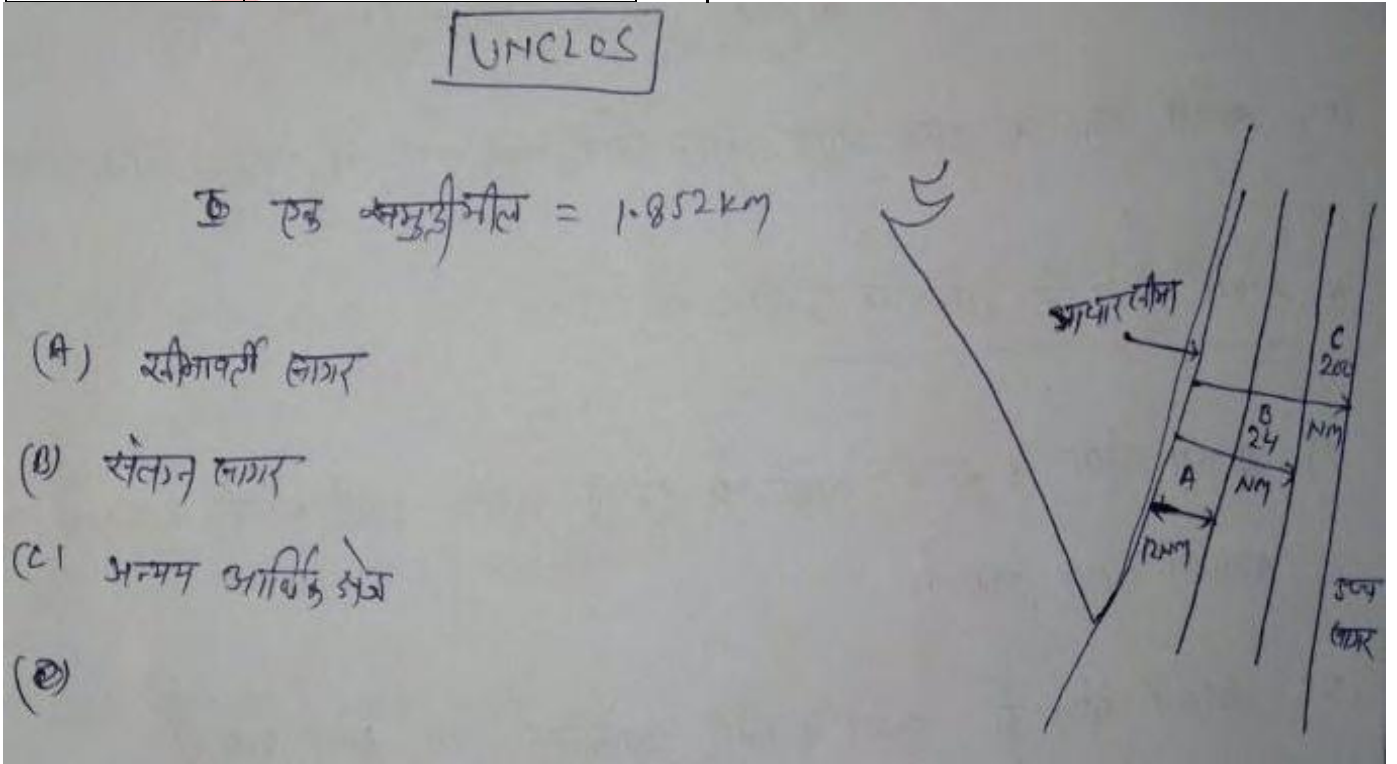 UNCLOS
एक समुद्री मील = 1.852 KM
(A) सीमावर्ती सागर
(B) संलग्न सागर
(C) अनन्य आर्थिक क्षेत्र
आधार सीमा
C
200
NM
B
24
NM
A
12NM
उच्च
सागर